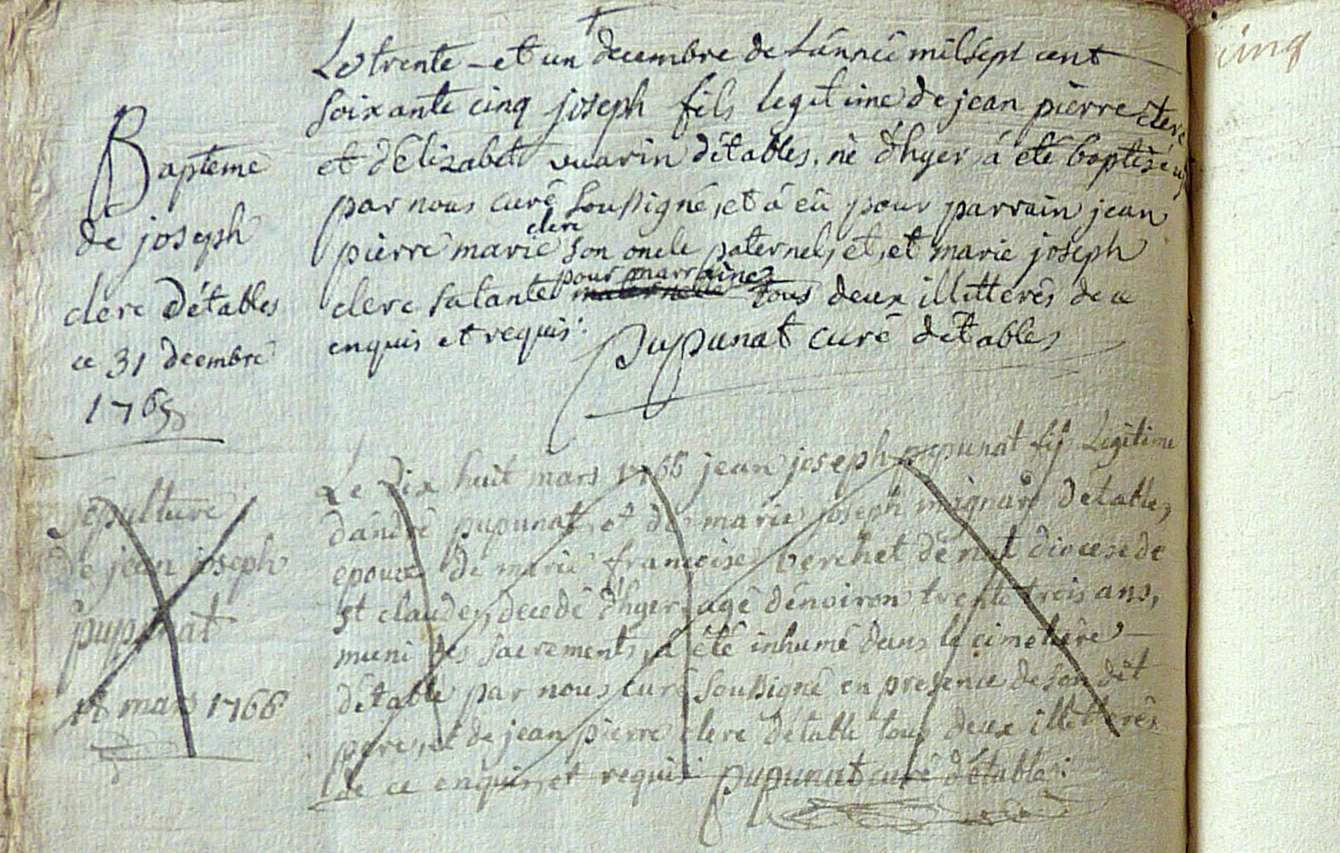 Bapteme
de joseph
clerc détables
ce 31 decembre
1765
Le trente et un decembre de Lánnée mil sept cent
soixante cinq joseph fils legitime de jean pierre clerc
et délizabet vuarin détables, né d'hyer á été baptisé
par nous curé soussigné, et á eû pour parrain jean
pierre marie clerc son oncle paternel, et, et marie joseph
clerc sa tante pour marraine maternelle tous deux illitterés de ce
enquis et requis.
pupunat curé détables
Sépulture
de jean joseph
pupunat
18 mars 1766
Le dix huit mars 1766 jean joseph pupunat fils Légitime
dándré pupunat, et de marie joseph détables,
epoux de marie françoise verchet diocese de
st claude, decedé d'hyer agé dénviron trente trois ans,
muni des sácrements, á été inhumé dans le cimetiére
détable par nous curé soussigné en presence de son dêt
pere, et de jean pierre clerc détable tous deux illitterés
de ce enquis, et requis pupunat curé détable.
cinq